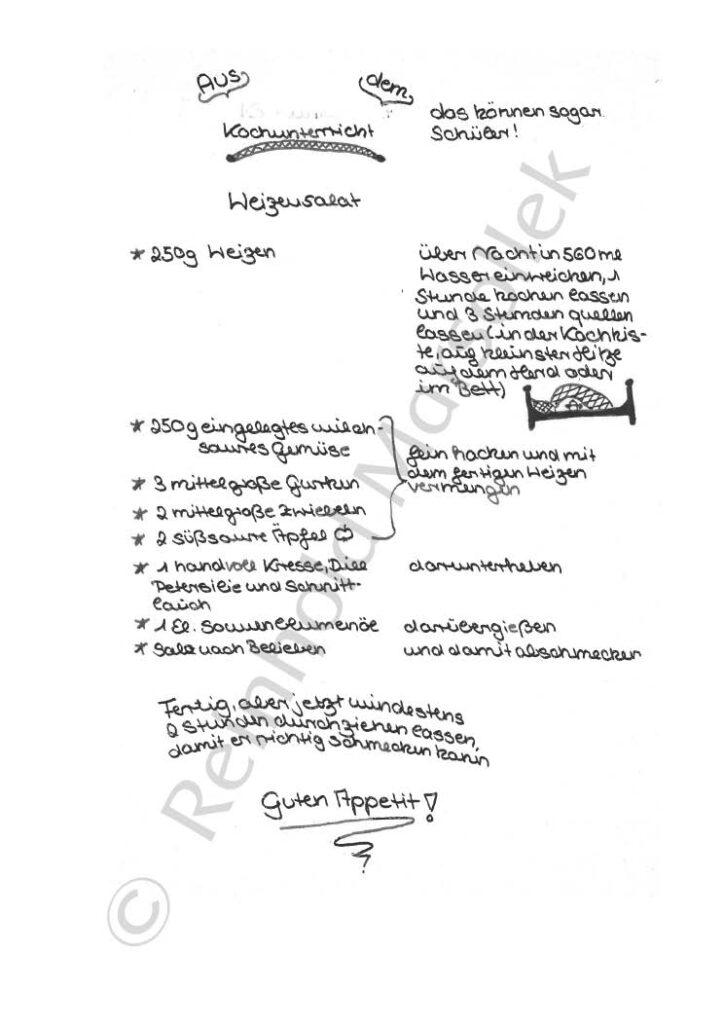 Aus dem
Kochunterricht
das können sogar
Schüler!
Weizensalat
* 250g Weizen
über Nacht in 560 ml
Wasser einweichen, 1
Stunde kochen lassen
und 3 Stunden quellen
lassen (in der Kochkis-
te, auf kleinster Hitze
auf dem Herd oder
im Bett)
* 250g eingelegtes milch-
saures Gemüse
* 3 mittelgroße Gurken
* 2 mittelgroße Zwiebeln
* 2 süßsaure Äpfel
fein hacken und mit
dem fertigen Weizen
vermengen
* 1 handvoll Kresse, Dill
Petersilie und Schnitt-
lauch
darunterheben
* 1 El. Sonnenblumenöl
darübergießen
* Salz nach Belieben
und damit abschmecken
Fertig, aber jetzt mindestens
2 Stunden durchziehen lassen,
damit er richtig schmecken kann
Guten Appetit!
© Reinhold Marsollek